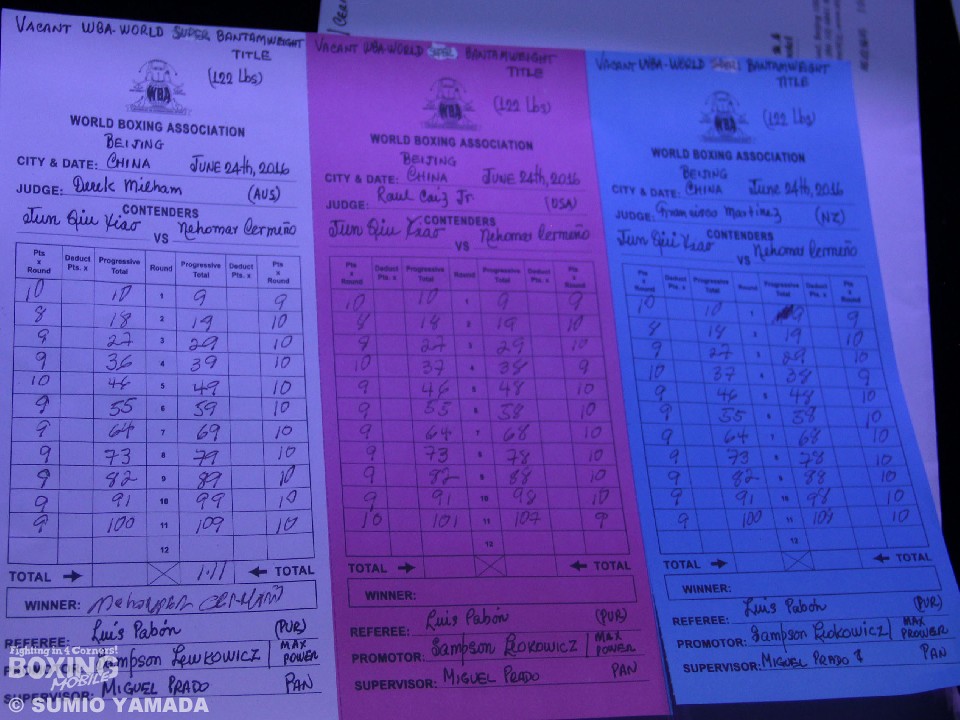 VACANT WBA-WORLD SUPER BANTAMWEIGHT
TITLE
(122 Lbs)
WBA
WORLD BOXING ASSOCIATION
BEIJING
CITY & DATE: CHINA JUNE 24th, 2016
JUDGE: Derek Milham (AUS)
CONTENDERS
Jun Qiu Xiao VS Nehomar Cermeño
Pts x Round Deduct Pts. x Progressive Total Round Progressive Total Deduct Pts. x Pts x Round
10 10 1 9 9
8 18 2 19 10
9 27 3 29 10
9 36 4 39 10
10 46 5 49 10
9 55 6 59 10
9 64 7 69 10
9 73 8 79 10
9 82 9 89 10
9 91 10 99 10
9 100 11 109 10
12
TOTAL TOTAL
WINNER:
REFEREE: Luis Pabón (PUR)
Sampson Lewkowicz MAX POWER
SUPERVISOR: MIGUEL PRADO PAN
VACANT WBA-WORLD SUPER BANTAMWEIGHT
TITLE
(122 Lbs)
WBA
WORLD BOXING ASSOCIATION
BEIJING
CITY & DATE: CHINA JUNE 24th, 2016
JUDGE: Raul Caiz Jr. (USA)
CONTENDERS
Jun Qiu Xiao VS Nehomar Cermeño
Pts x Round Deduct Pts. x Progressive Total Round Progressive Total Deduct Pts. x Pts x Round
10 10 1 9 9
8 18 2 19 10
9 27 3 29 10
10 37 4 38 9
9 46 5 48 10
9 55 6 58 10
9 64 7 68 10
9 73 8 78 10
9 82 9 88 10
9 91 10 98 10
10 101 11 107 9
12
TOTAL TOTAL
WINNER:
REFEREE: Luis Pabón (PUR)
PROMOTOR: Sampson MAX POWER
SUPERVISOR: MIGUEL PRADO PAN
VACANT WBA-WORLD BANTAMWEIGHT
TITLE
(122 Lbs)
WBA
WORLD BOXING ASSOCIATION
BEIJING
CITY & DATE: CHINA June 24th, 2016
JUDGE: Martinez (NZ)
CONTENDERS
Jun Qiu Xiao VS Nehomar Cermeño
Pts x Round Deduct Pts. x Progressive Total Round Progressive Total Deduct Pts. x Pts x Round
10 10 1 9 9
8 18 2 19 10
9 27 3 29 10
10 37 4 38 9
9 46 5 48 10
9 55 6 58 10
9 64 7 68 10
9 73 8 78 10
9 82 9 88 10
9 91 10 98 10
9 100 11 10
12
TOTAL TOTAL
WINNER:
REFEREE: Luis Pabón (PUR)
PROMOTOR: Sampson MAX POWER
SUPERVISOR: MIGUEL PRADO PAN
Fighting in 4 Corners!
BOXING
MOBILE
© SUMIO YAMADA